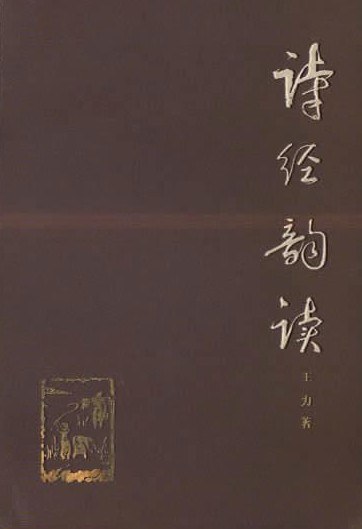 诗经韵读
王力著